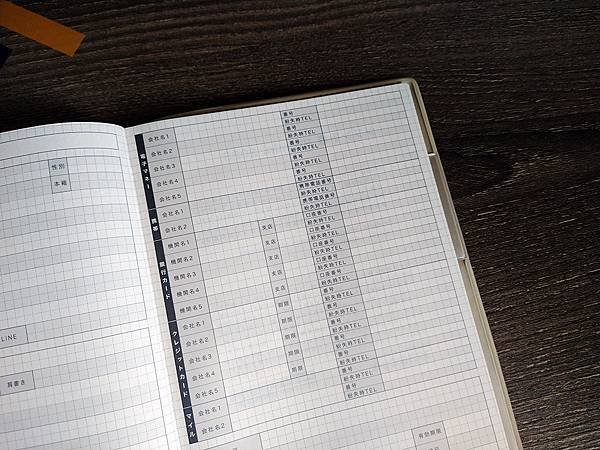 性別
本籍
LINE
肩書き
電子マネー
会社名1 番号
紛失時TEL
会社名2 番号
紛失時TEL
会社名3 番号
紛失時TEL
会社名4 番号
紛失時TEL
会社名5 番号
紛失時TEL
携帯
会社名1 携帯電話番号
紛失時TEL
会社名2 携帯電話番号
紛失時TEL
銀行カード
機関名1 支店 口座番号
紛失時TEL
機関名2 支店 口座番号
紛失時TEL
機関名3 支店 口座番号
紛失時TEL
機関名4 支店 口座番号
紛失時TEL
機関名5 支店 口座番号
紛失時TEL
クレジットカード
会社名1 期限 番号
紛失時TEL
会社名2 期限 番号
紛失時TEL
会社名3 期限 番号
紛失時TEL
会社名4 期限 番号
紛失時TEL
会社名5 期限 番号
紛失時TEL
マイル
会社名1
会社名2
有効期限